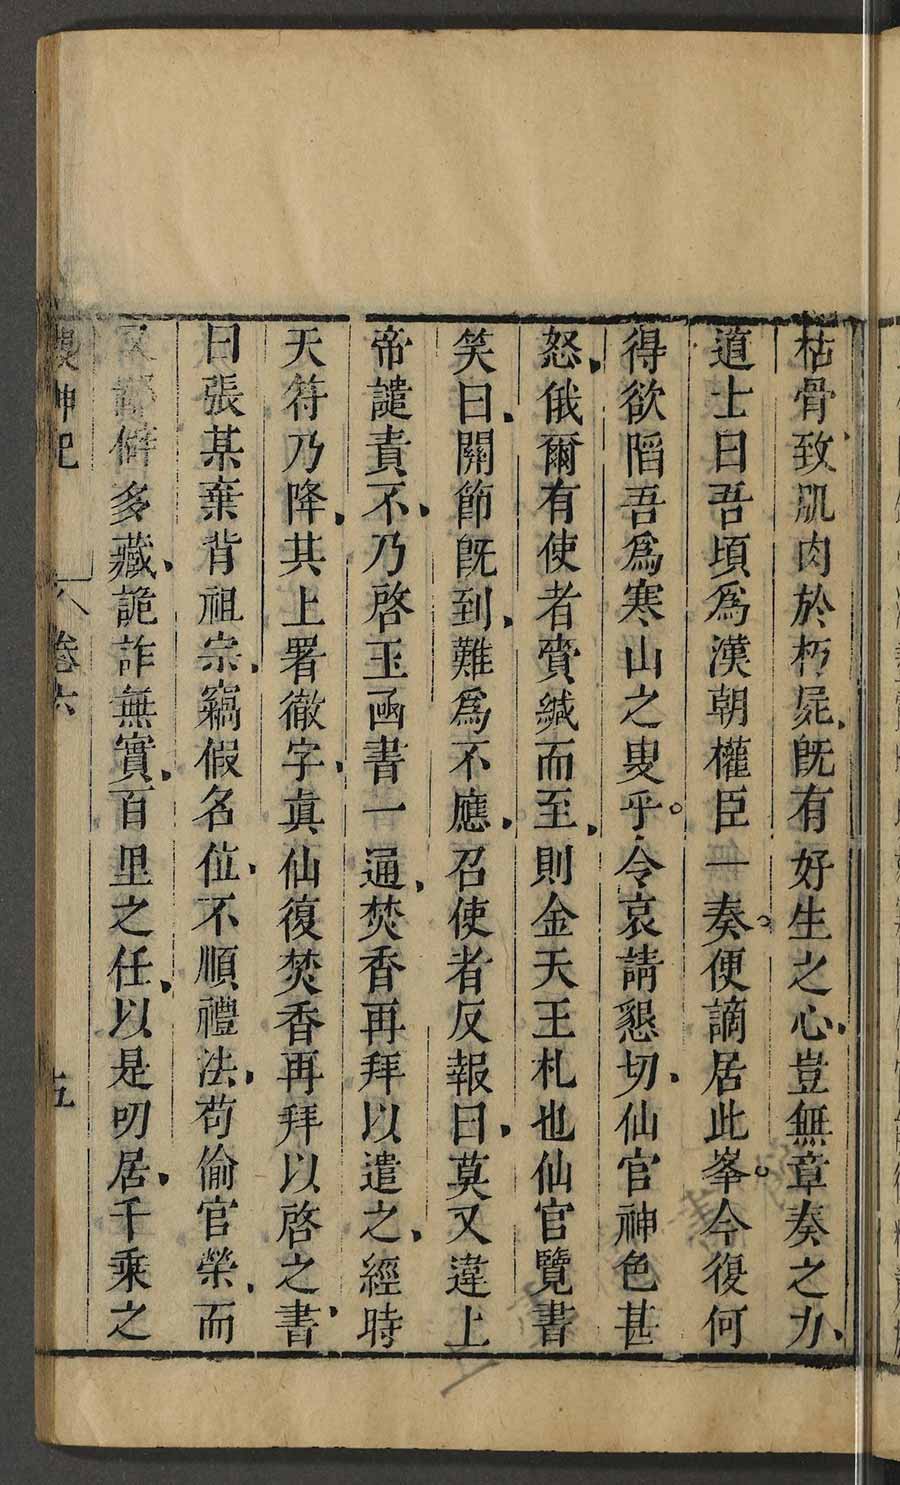 枯骨致肌肉於朽屍既有好生之心豈無章奏之力
道士曰吾頃爲漢朝權臣一奏便謫居此峯今復何
得欲䧟吾爲寒山之叟乎令哀請懇切仙官神色甚
怒俄爾有使者賫緘而至則金天王札也仙官覽書
笑曰關節既到難爲不應召使者反報曰莫又違上
帝譴責不乃啓玉函書一通焚香再拜以遣之經時
天符乃降其上署徹字真仙復焚香再拜以啓之書
曰張某棄背祖宗竊假名位不順禮法苟偷官榮而
又鄙僻多藏詭詐無實百里之任以是叨居千乘之
神記
卷六
五